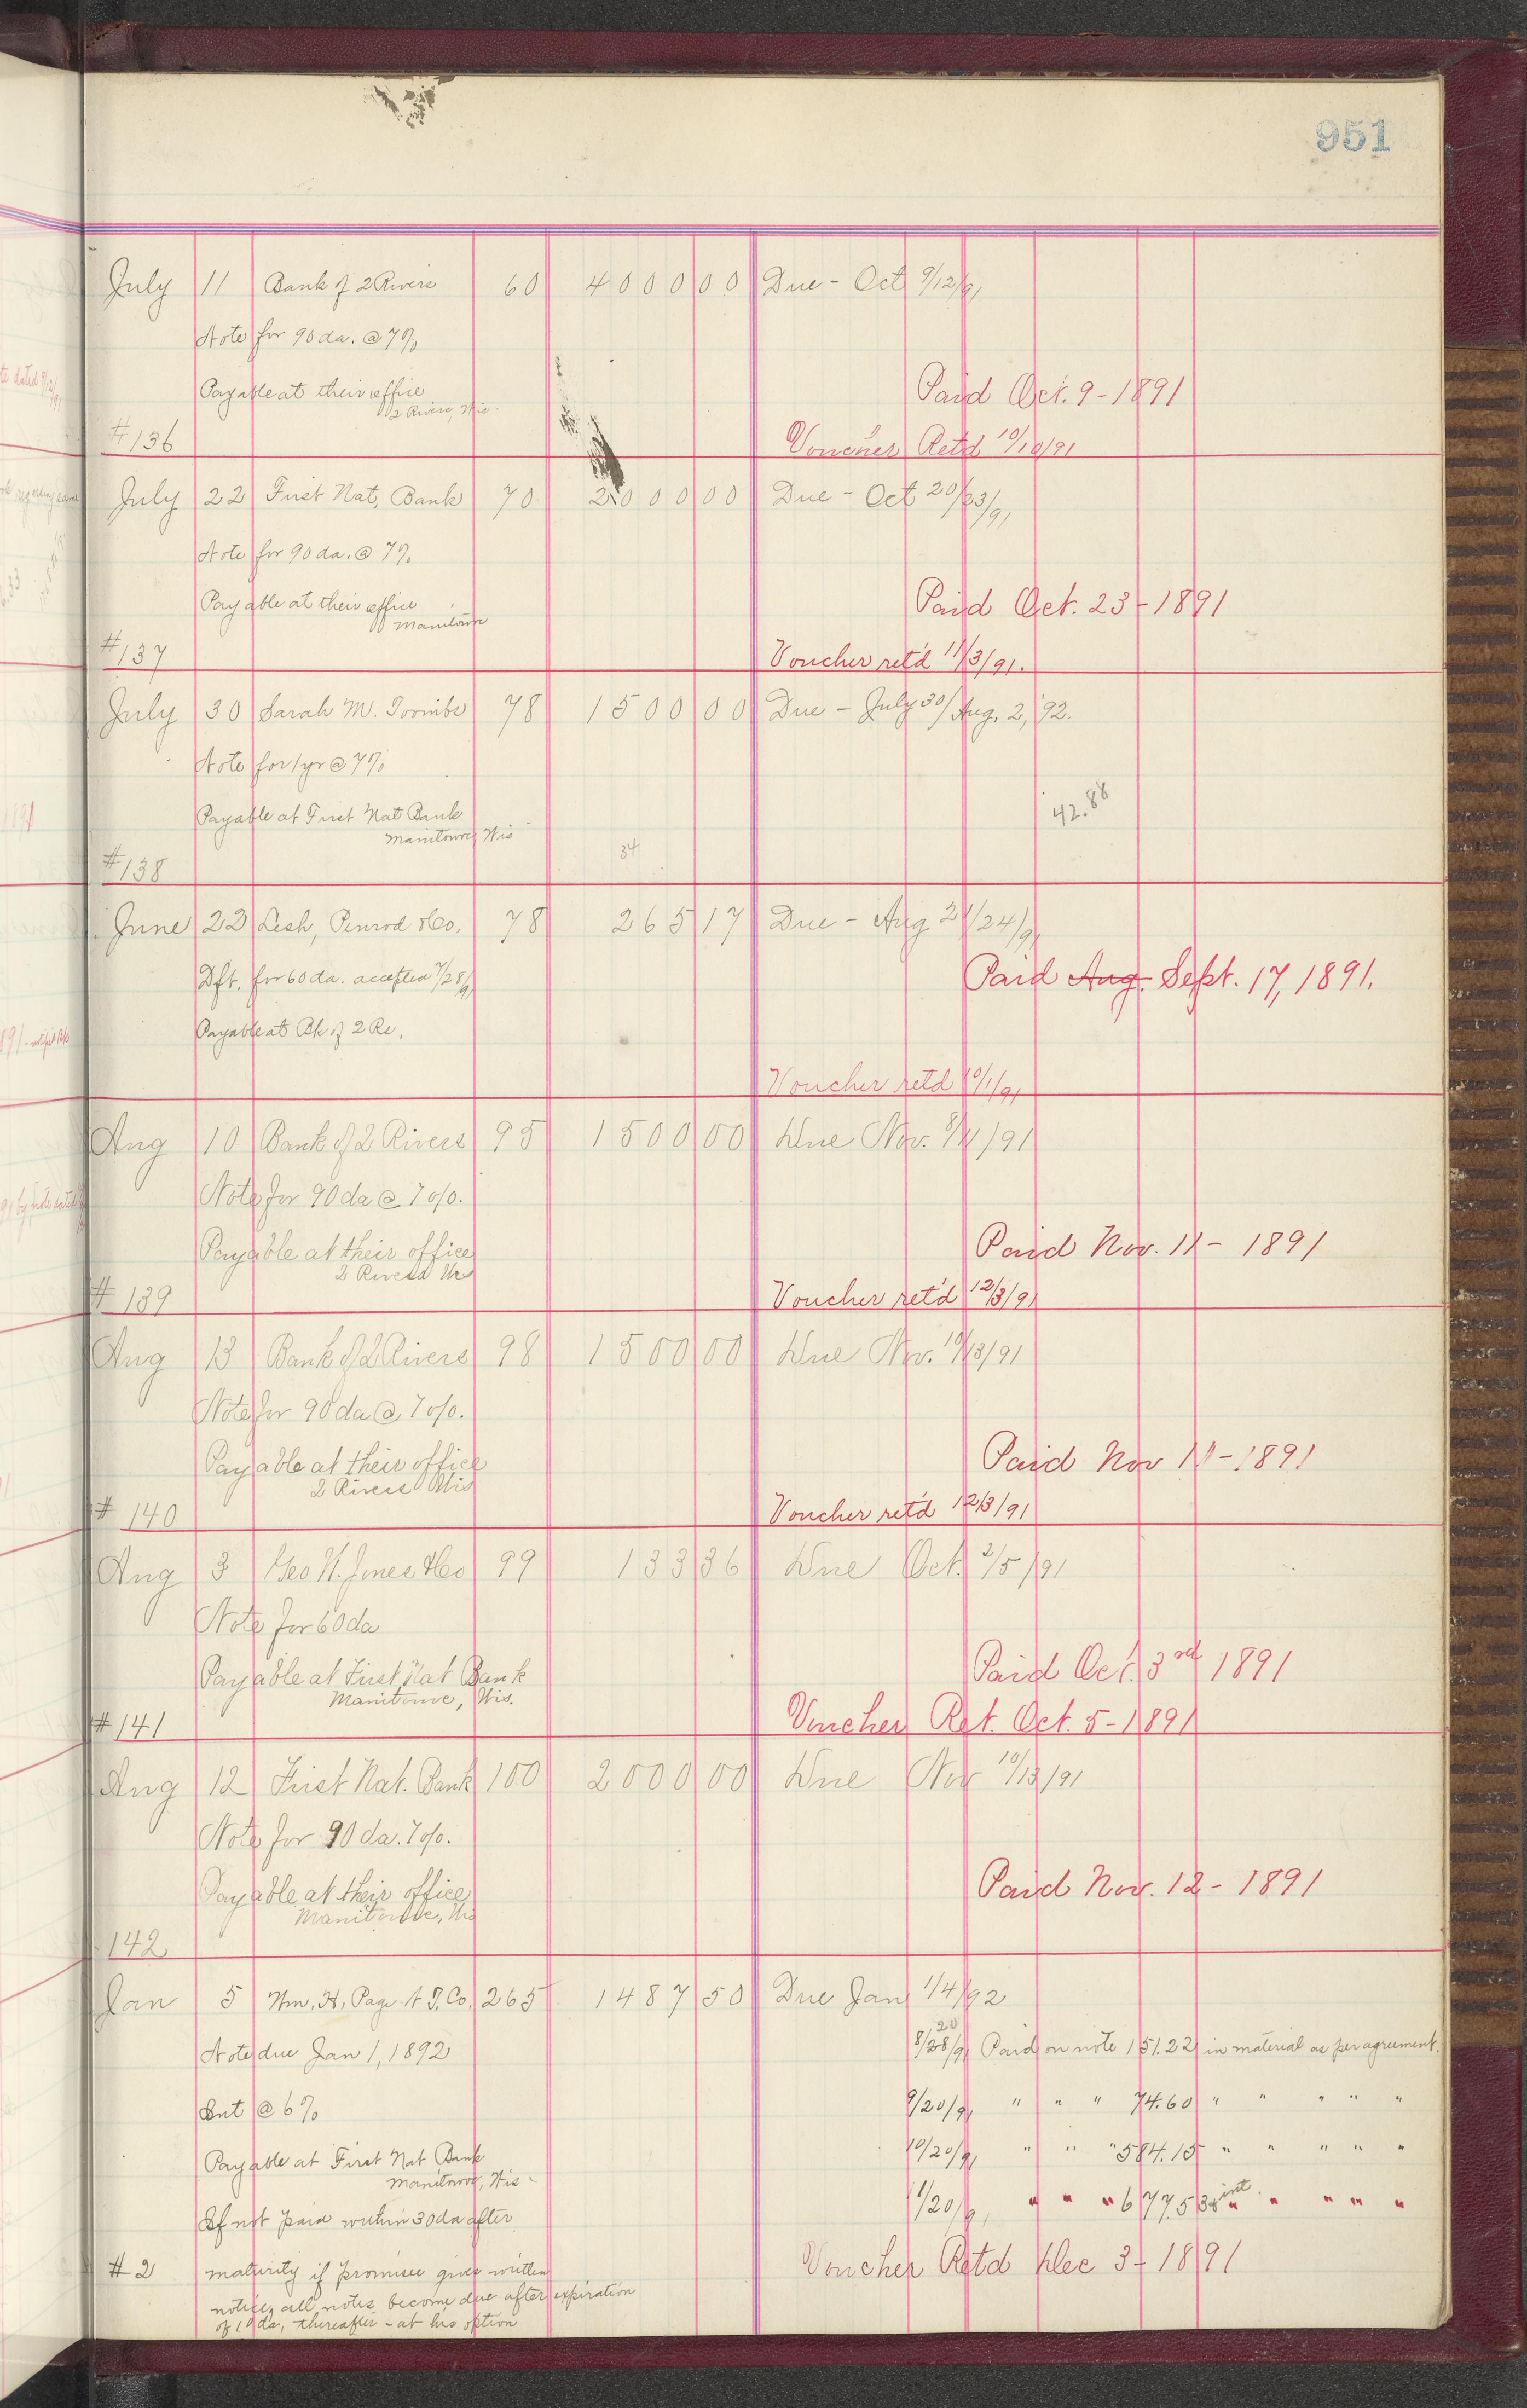 951
July 11 Bank of 2 Rivers 60 4000 00 Due - Oct 9/12/91
Note for 90 da. @ 7%
Payable at their office
2 Rivers, Wis.
Paid Oct. 9 - 1891
#136
Voucher Retd 10/10/91
July 22 First Nat. Bank 70 2000 00 Due - Oct 20/23/91
Note for 90 da. @ 7%
Payable at their office
Manitowoc
Paid Oct. 23 - 1891
#137
Voucher ret'd 11/3/91.
July 30 Sarah M. Toombs 78 1500 00 Due - July 30/Aug. 2, '92.
Note for 1 yr @ 7%
Payable at First Nat Bank
Manitowoc Wis
42.88
34
#138
June 22 Lesh, Penrod & Co. 78 265 17 Due - Aug 21/24/91
Dft. for 60 da. accepted 7/28/91
Paid Aug. Sept. 17, 1891.
Payable at Bk of 2 Rs.
Voucher retd 10/1/91
Aug 10 Bank of 2 Rivers 95 1500 00 Due Nov. 8/11/91
Note for 90 da @ 7 o/o.
Payable at their office
2 Rivers Wis
Paid Nov. 11 - 1891
#139
Voucher ret'd 12/3/91
Aug 13 Bank of 2 Rivers 98 1500 00 Due Nov. 10/13/91
Note for 90 da @ 7 o/o.
Payable at their office
2 Rivers Wis
Paid Nov 11 - 1891
#140
Voucher ret'd 12/3/91
Aug 3 Geo H. Jones & Co 99 133 36 Due Oct. 2/5/91
Note for 60 da
Payable at First Nat Bank
Manitowoc, Wis.
Paid Oct. 3rd 1891
#141
Voucher Ret. Oct. 5 - 1891
Aug 12 First Nat. Bank 100 2000 00 Due Nov 10/13/91
Note for 90 da. 7 o/o.
Payable at their office
Manitowoc, Wis
Paid Nov. 12 - 1891
142
Jan 5 Wm. H. Page N. T. Co. 265 1487 50 Due Jan 1/4/92
Note due Jan 1, 1892
8/28/91 20 Paid on note 151.22 in material as per agreement.
Int @ 6%
9/20/91 " " " 74.60 " " " " "
Payable at First Nat Bank
Manitowoc, Wis -
10/20/91 " " " 584.15 " " " " "
If not paid within 30 da after
11/20/91 " " " 677.53 & int. " " " " "
#2
maturity if promisee gives written
notice, all notes become due after expiration
of 10 da, thereafter - at his option
Voucher Retd Dec 3 - 1891